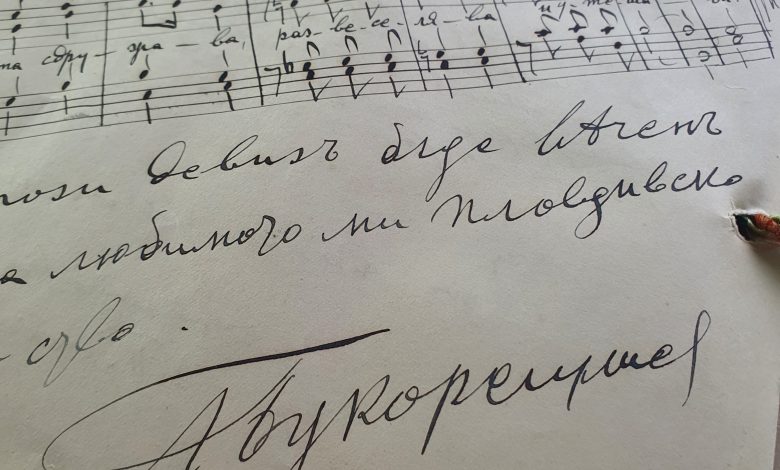 та сдру-жа-ва, раз-ве-се-ля-ва
този Девизъ бѫде вѣченъ
а любимото ми Пловдивско
-ство.
АБукорещлиев